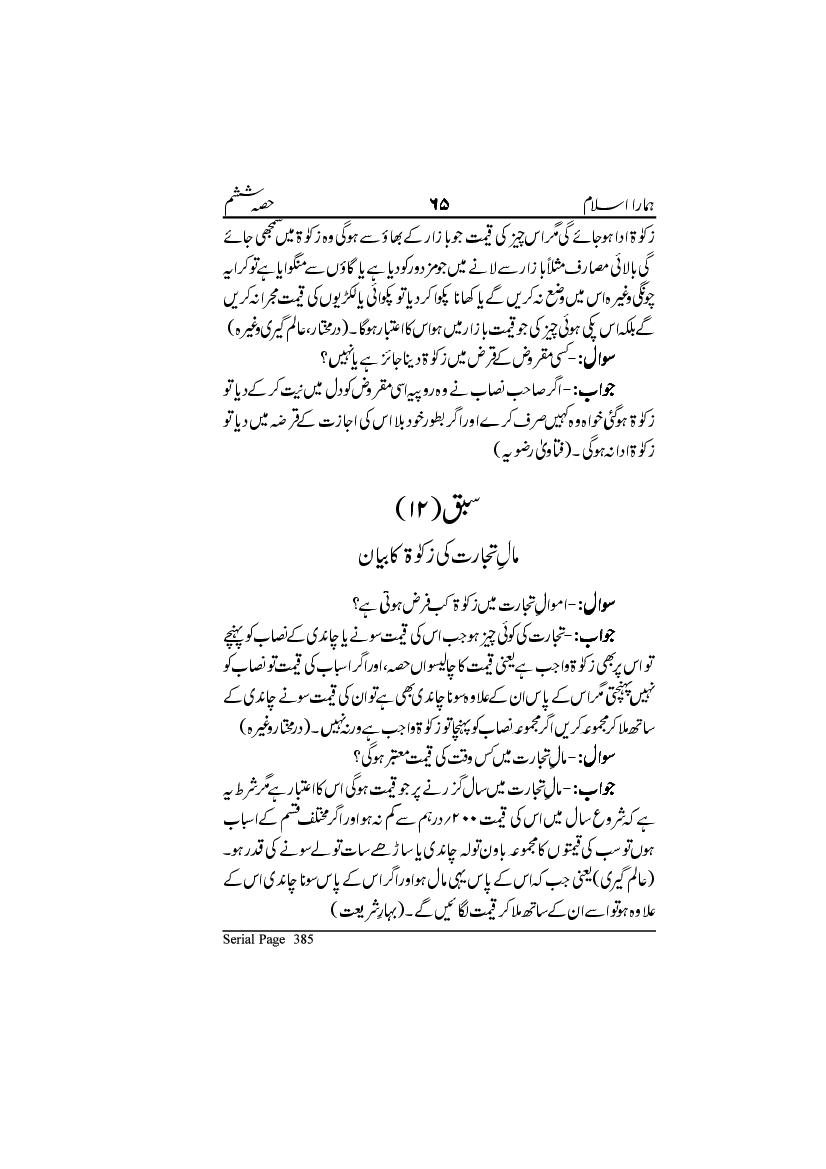 ہمارا اسلام ۶۵ حصہ ششم
زکوٰۃ ادا ہوجائے گی مگر اس چیز کی قیمت جو بازار کے بھاؤ سے ہوگی وہ زکوٰۃ میں سمجھی جائے
گی بالائی مصارف مثلاً بازار سے لانے میں جو مزدور کو دیا ہے یا گاؤں سے منگوایا ہے تو کرایہ
چونگی وغیرہ اس میں وضع نہ کریں گے یا کھانا پکوا کر دیا تو پکوائی یا لکڑیوں کی قیمت مجرا نہ کریں
گے بلکہ اس پکی ہوئی چیز کی جو قیمت بازار میں ہو اس کا اعتبار ہوگا۔ (درمختار، عالم گیری وغیرہ)
سوال:- کسی مقروض کے قرض میں زکوٰۃ دینا جائز ہے یا نہیں؟
جواب:- اگر صاحب نصاب نے وہ روپیہ اسی مقروض کو دل میں نیت کر کے دیا تو
زکوٰۃ ہوگئی خواہ وہ کہیں صرف کرے اور اگر بطور خود بلا اس کی اجازت کے قرضہ میں دیا تو
زکوٰۃ ادا نہ ہوگی۔ (فتاویٰ رضویہ)
سبق (۱۲)
مالِ تجارت کی زکوٰۃ کا بیان
سوال:- اموالِ تجارت میں زکوٰۃ کب فرض ہوتی ہے؟
جواب:- تجارت کی کوئی چیز ہو جب اس کی قیمت سونے یا چاندی کے نصاب کو پہنچے
تو اس پر بھی زکوٰۃ واجب ہے یعنی قیمت کا چالیسواں حصہ، اور اگر اسباب کی قیمت تو نصاب کو
نہیں پہنچتی مگر اس کے پاس ان کے علاوہ سونا چاندی بھی ہے تو ان کی قیمت سونے چاندی کے
ساتھ ملا کر مجموعہ کریں اگر مجموعہ نصاب کو پہنچا تو زکوٰۃ واجب ہے ورنہ نہیں۔ (درمختار وغیرہ)
سوال:- مالِ تجارت میں کس وقت کی قیمت معتبر ہوگی؟
جواب:- مالِ تجارت میں سال گزرنے پر جو قیمت ہوگی اس کا اعتبار ہے مگر شرط یہ
ہے کہ شروع سال میں اس کی قیمت ۲۰۰؍ درہم سے کم نہ ہو اور اگر مختلف قسم کے اسباب
ہوں تو سب کی قیمتوں کا مجموعہ باون تولہ چاندی یا ساڑھے سات تولے سونے کی قدر ہو۔
(عالم گیری) یعنی جب کہ اس کے پاس یہی مال ہو اور اگر اس کے پاس سونا چاندی اس کے
علاوہ ہو تو اسے ان کے ساتھ ملا کر قیمت لگائیں گے۔ (بہارِ شریعت)
Serial Page 385